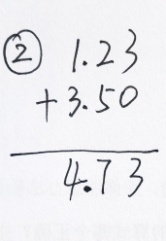 ② 1.23
+3.50
4.73